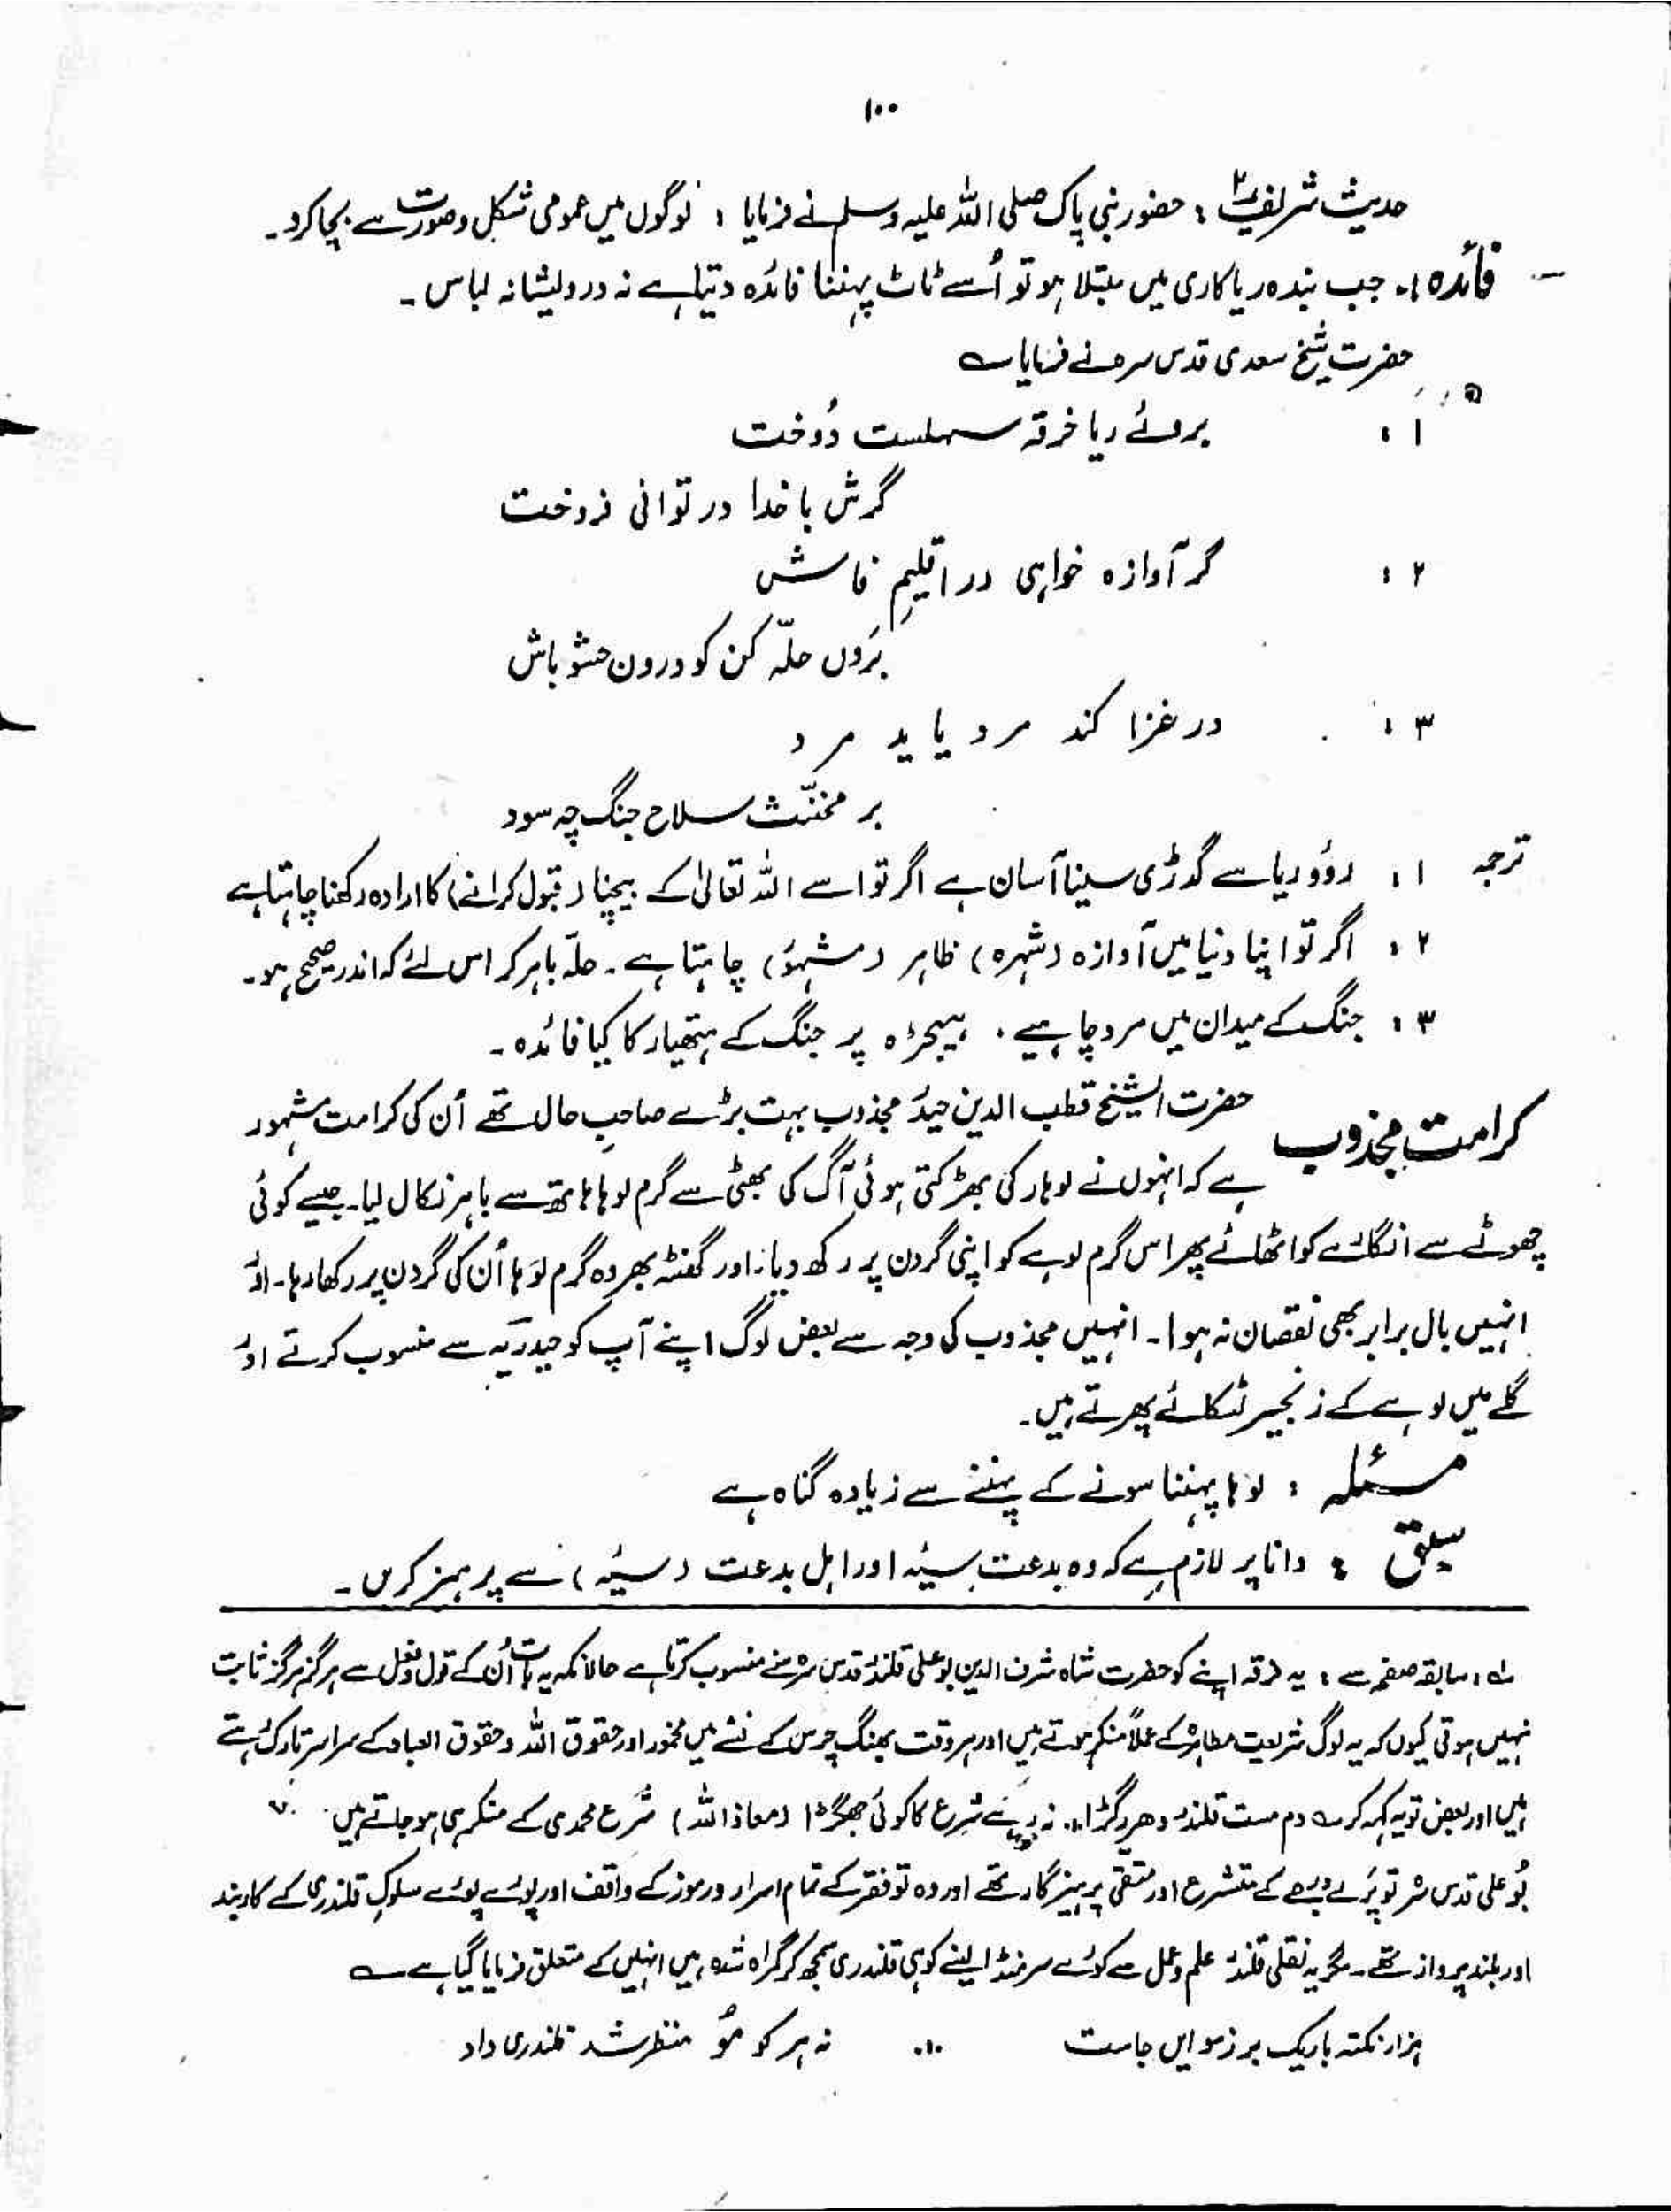 ۱۰۰
حدیث شریف ۲ : حضور نبی پاک صلی اللہ علیہ وسلم نے فرمایا : لوگوں میں عمومی شکل و صورت سے بچا کرو۔
فائدہ :۔ جب بندہ ریاکاری میں مبتلا ہو تو اُسے ٹاٹ پہننا فائدہ دیتا ہے نہ درویشانہ لباس ۔
حضرت شیخ سعدی قدس سرہ نے فرمایا ؎
۱ : بروئے ریا خرقہ سہلست دُوخت
گرش با خدا در توانی فروخت
۲ : گر آوازہ خواہی در اقلیمِ فاش
بَروں حلّہ کن کو درون حشو باش
۳ : در غزا کند مرد یا ید مرد
بر مخنّث سلاح جنگ چہ سود
ترجمہ ۱ : روؤ ریا سے گدڑی سینا آسان ہے اگر تو اسے اللہ تعالیٰ کے بیچنا (قبول کرانے) کا ارادہ رکھنا چاہتا ہے
۲ : اگر تو اپنا دنیا میں آوازہ (شہرہ) ظاہر (مشہور) چاہتا ہے ۔ حلّہ باہر کر اس لئے کہ اندر صحیح ہو۔
۳ : جنگ کے میدان میں مرد چاہیے ۔ ہیجڑہ پر جنگ کے ہتھیار کا کیا فائدہ ۔
کرامت مجذوب حضرت الشیخ قطب الدین حیدر مجذوب بہت بڑے صاحبِ حال تھے اُن کی کرامت مشہور
ہے کہ انہوں نے لوہار کی بھڑکتی ہوئی آگ کی بھٹی سے گرم لوہا ہاتھ سے باہر نکال لیا۔ جیسے کوئی
چھوٹے سے انگارے کو اٹھائے پھر اس گرم لوہے کو اپنی گردن پر رکھ دیا۔ اور گھنٹہ بھر وہ گرم لوہا اُن کی گردن پر رکھا رہا۔ اور
انہیں بال برابر بھی نقصان نہ ہوا ۔ انہیں مجذوب کی وجہ سے بعض لوگ اپنے آپ کو حیدریہ سے منسوب کرتے اور
گلے میں لوہے کے زنجیر لٹکائے پھرتے ہیں۔
مسئلہ : لوہا پہننا سونے کے پہننے سے زیادہ گناہ ہے
سبق : دانا پر لازم ہے کہ وہ بدعت سیئہ اور اہل بدعت (سیئہ) سے پرہیز کریں ۔
؎ : سابقہ صفحہ سے : یہ فرقہ اپنے کو حضرت شاہ شرف الدین بو علی قلندر قدس سرہ سے منسوب کرتا ہے حالانکہ یہ بات اُن کے قول و فعل سے ہرگز ہرگز ثابت
نہیں ہوتی کیوں کہ یہ لوگ شریعت مطاہرہ کے عملاً منکر ہوتے ہیں اور ہر وقت بھنگ چرس کے نشے میں مخمور اور حقوق اللہ و حقوق العباد کے سراسر تارک رہتے
ہیں اور بعض تو یہ کہہ کر ؎ دم مست قلندر دھر رگڑا ... نہ رہے شرع کا کوئی جھگڑا (معاذ اللہ) شرع محمدی کے منکر ہی ہو جاتے ہیں
بُو علی قدس سرہ تو پرلے درجے کے متشرع اور متقی پرہیزگار تھے اور وہ تو فقر کے تمام اسرار و رموز کے واقف اور پورے پورے سلوک قلندری کے کاربند
اور بلند پرواز تھے ۔ مگر یہ نقلی قلندر علم و عمل سے کورے سر منڈا لینے کو ہی قلندری سمجھ کر گمراہ شدہ ہیں انہیں کے متعلق فرمایا گیا ہے ؎
ہزار نکتہ باریک بر زمو ایں جاست ... نہ ہر کو مُو منظر شد قلندری داد